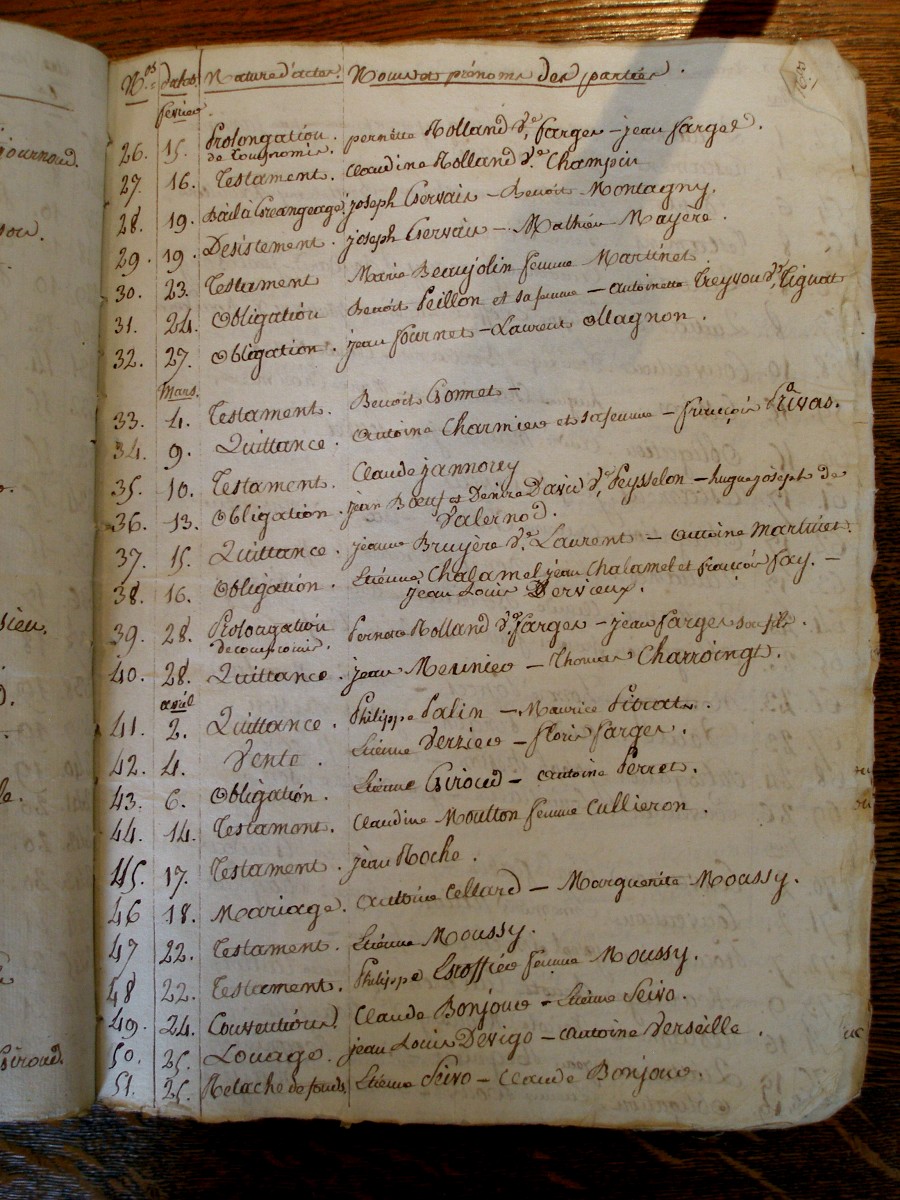 Nos dates Nature d'actes. Noms et prénoms des parties.
février
26. 15. Prolongation de Compromis. pernette Rolland Ve. farges – jean farges.
27. 16. Testament. Claudine Rolland Ve. Champin
28. 19. Bail à Greangeage. joseph Gervais – Benoit Montagny.
29. 19. Desistement. joseph Gervais – Mathieu Mayère.
30. 23. Testament Marie Beaujolin femme Martinet
31. 24. Obligation Benoit Peillon et sa femme – antoinette Treyvou Ve. Tignat
32. 27. Obligation. jean fournet – Laurent Ollagnon.
Mars.
33. 4. Testament. Benoit Gomet –
34. 9. Quittance. antoine Charmier et sa femme – françois Privas.
35. 10. Testament. Claude jannorey
36. 13. Obligation. jean Bœuf et David Ve. Peysselon – hugue joseph de
Valernod.
37. 15. Quittance. jeanne Bruyère Ve. Laurent – antoine Martinet.
38. 16. Obligation. Etienne Chalamel jean Chalamel et françois fay. –
jean Louis Dervieux.
39. 28. Prolongation de compromis. Pernette Rolland Ve. farges – jean farges son fils.
40. 28. Quittance. jean Meunier – Thomas Charroingt.
avril
41. 2. Quittance. Philippe Palin – Maurice Pitrat.
42. 4. Vente. Etienne Verzier – floris farges.
43. 6. Obligation. Etienne Giroud – antoine Perret.
44. 14. Testament. Claudine Moulton femme Cullieron.
45. 17. Testament. jean Roche.
46 18. Mariage. antoine Cellard – Marguerite Moussy.
47 22. Testament. Etienne Moussy.
48 22. Testament. Philippe Escoffier femme Moussy.
49. 24. Conventions. Claude Bonjour – Etienne Seivo.
50. 25. Louage. jean Louis Devigo – antoine Verseille.
51. 25. Relache de fonds. Etienne Seivo – Claude Bonjour.